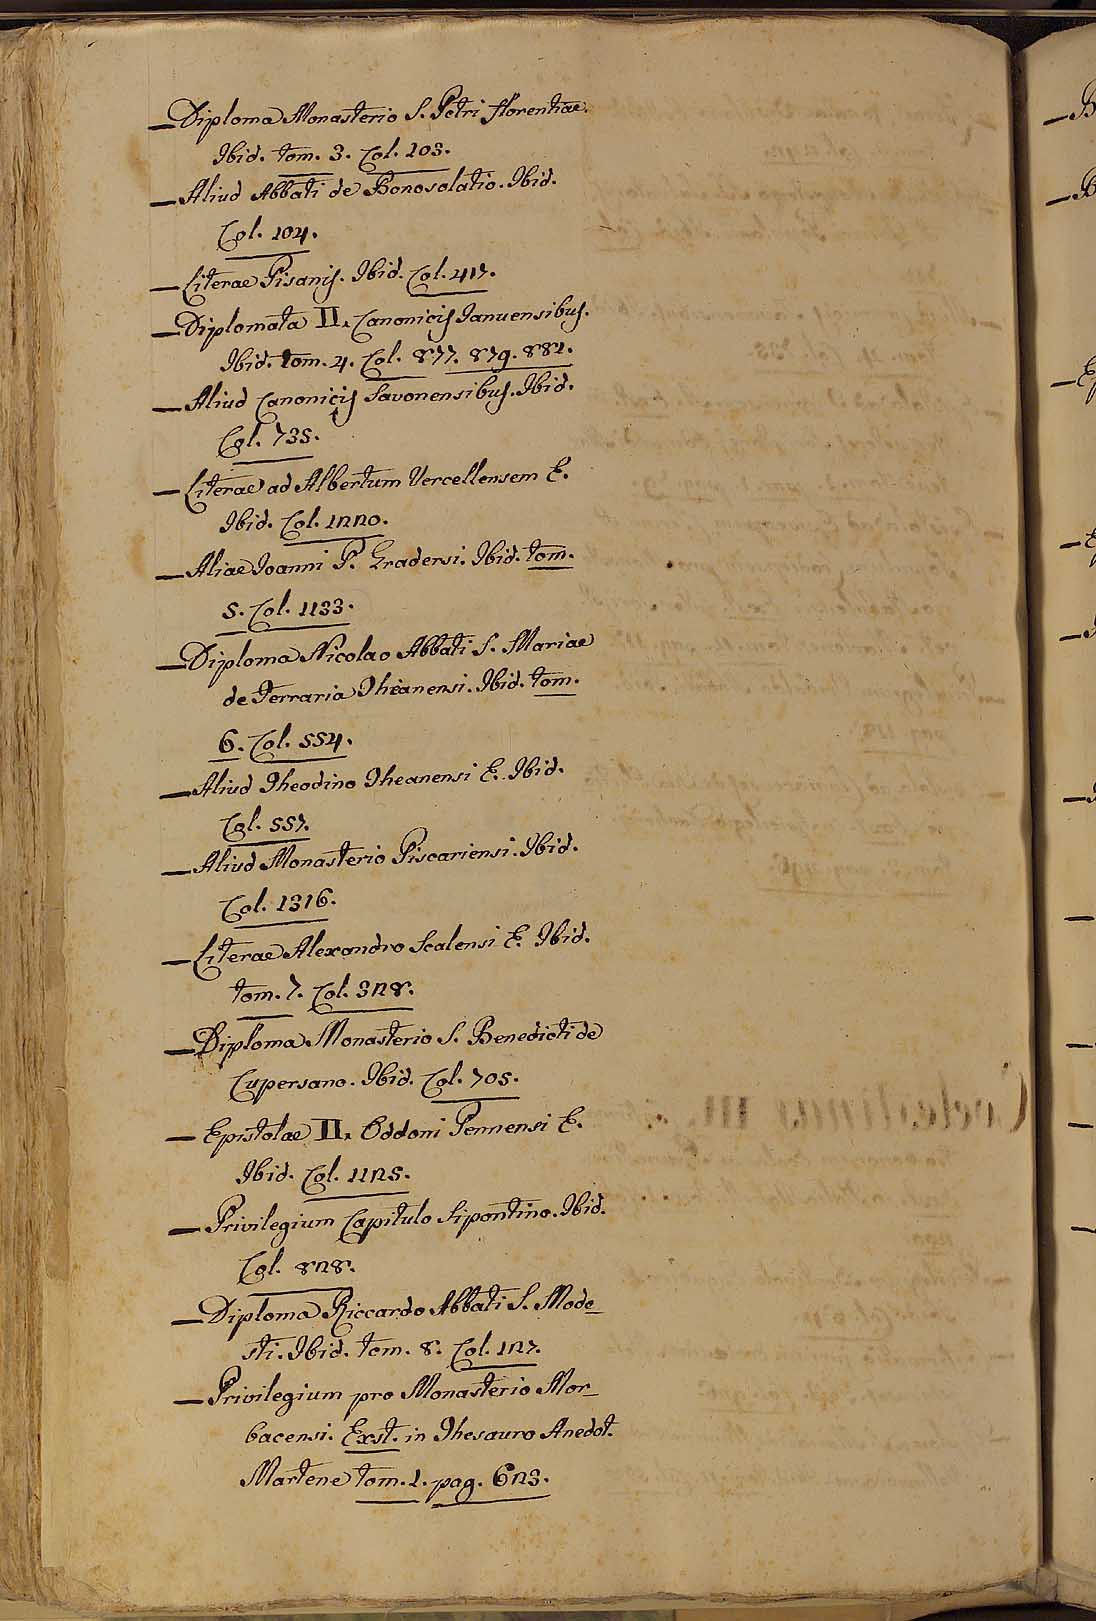 — Diploma Monasterio S. Petri Florentiae.
Ibid. tom. 3. Col. 103.
— Aliud Abbati de Bonosolatio. Ibid.
Col. 104.
— Literae Pisanis. Ibid. Col. 417.
— Diplomata II. Canonicis Ianuensibus.
Ibid. tom. 4. Col. 877. 879. 881.
— Aliud Canonicis Savonensibus. Ibid.
Col. 735.
— Literae ad Albertum Vercellensem E.
Ibid. Col. 1220.
— Aliae Ioanni P. Gradensi. Ibid. tom.
5. Col. 1133.
— Diploma Nicolao Abbati S. Mariae
de Ferraria Theanensi. Ibid. tom.
6. Col. 554.
— Aliud Theodino Theanensi E. Ibid.
Col. 557.
— Aliud Monasterio Piscariensi. Ibid.
Col. 1316.
— Literae Alexandro Scalensi E. Ibid.
tom. 7. Col. 328.
— Diploma Monasterio S. Benedicti de
Cupersano. Ibid. Col. 705.
— Epistolae II. Oddoni Pennensi E.
Ibid. Col. 1125.
— Privilegium Capitulo Sipontino. Ibid.
Col. 828.
— Diploma Riccardo Abbati S. Mode_
sti. Ibid. tom. 8. Col. 127.
— Privilegium pro Monasterio Mor_
bacensi. Exst. in Thesauro Anedot.
Martene tom. 1. pag. 623.